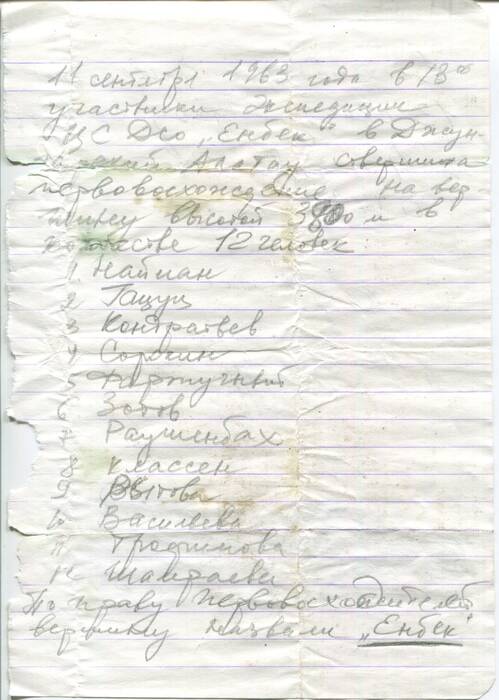 11 сентября 1963 года в 13⁰⁰
участники экспедиции
ЦС ДСО „Енбек" в Джун-
гарский Алатау совершили
первовосхождение на вер-
шину высотой 3800 м в
количестве 12 человек
1 Найман
2 Гацуц
3 Контратьев
4 Сорокин
5
6 Зотов
7 Раушенбах
8 Классен
9
10 Васильева
11 Трофимова
12
По праву первовосходителей
вершину назвали „Енбек"